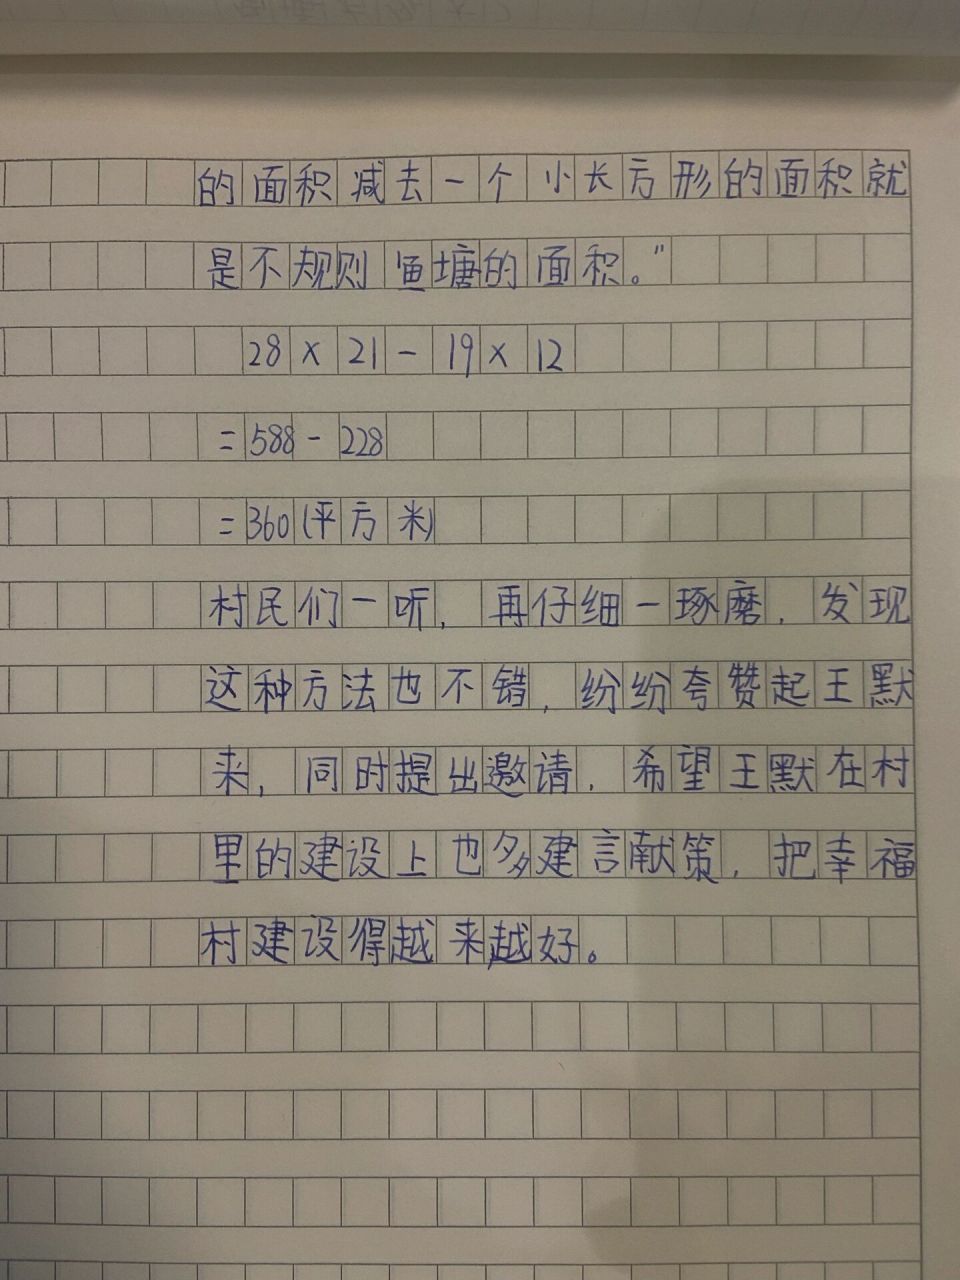 的面积减去一个小长方形的面积就
是不规则鱼塘的面积。”
28×21-19×12
=588-228
=360(平方米)
村民们一听，再仔细一琢磨，发现
这种方法也不错，纷纷夸赞起王默
来，同时提出邀请，希望王默在村
里的建设上也多建言献策，把幸福
村建设得越来越好。